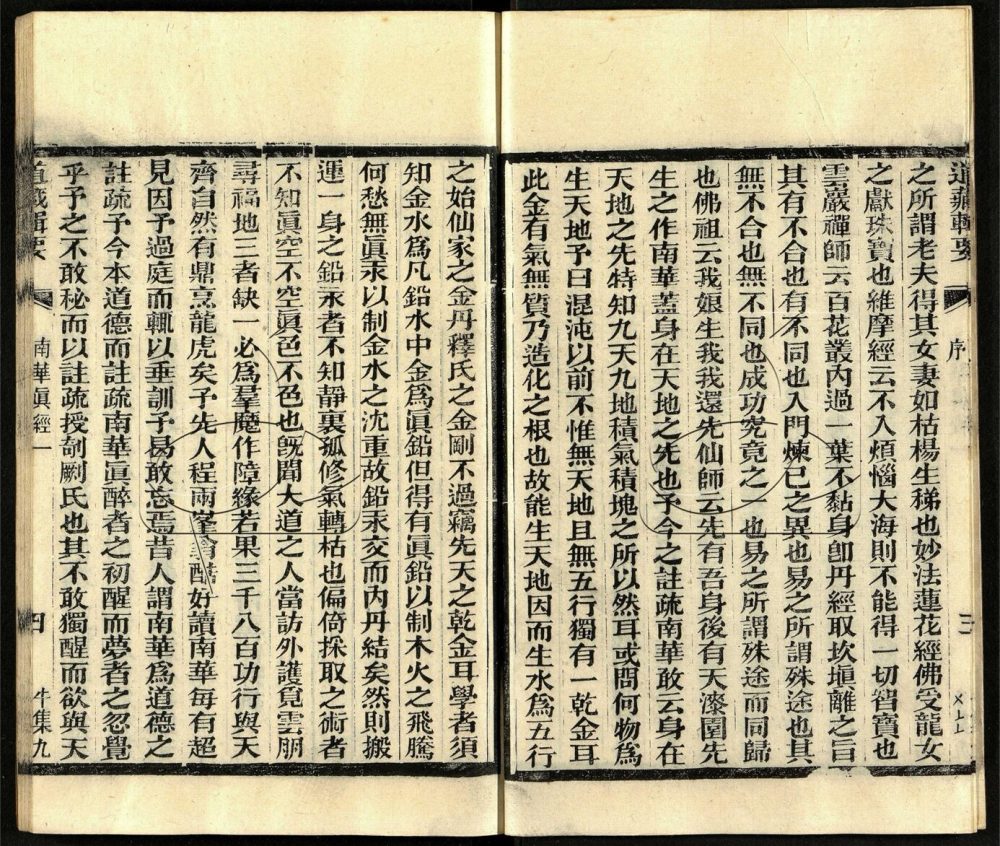 道藏輯要 序 三
之所謂老夫得其女妻如枯楊生稊也妙法蓮花經佛受龍女
之獻珠寶也維摩經云不入煩惱大海則不能得一切智寶也
雲巖禪師云百花叢內過一葉不黏身卽丹經取坎塡離之旨
其有不合也有不同也入門煉己之異也易之所謂殊途也其
無不合也無不同也成功究竟之一也易之所謂殊途而同歸
也佛祖云我娘生我我還先仙師云先有吾身後有天漆園先
生之作南華蓋身在天地之先也予今之註疏南華敢云身在
天地之先特知九天九地積氣積塊之所以然耳或問何物爲
生天地予曰混沌以前不惟無天地且無五行獨有一乾金耳
此金有氣無質乃造化之根也故能生天地因而生水爲五行
之始仙家之金丹釋氏之金剛不過竊先天之乾金耳學者須
知金水爲凡鉛水中金爲眞鉛但得有眞鉛以制木火之飛騰
何愁無眞汞以制金水之沈重故鉛汞交而內丹結矣然則搬
運一身之鉛汞者不知靜裏孤修氣轉枯也偏倚採取之術者
不知眞空不空眞色不色也旣聞大道之人當訪外護覓雲朋
尋福地三者缺一必爲羣魔作障緣若果三千八百功行與天
齊自然有鼎烹龍虎矣予先人程兩峯醅好讀南華每有超
見因予過庭而輒以垂訓予曷敢忘焉昔人謂南華爲道德之
註疏予今本道德而註疏南華眞醉者之初醒而夢者之忽覺
乎予之不敢秘而以註疏授剞劂氏也其不敢獨醒而欲與天
道藏輯要 南華眞經一 四 牛集九